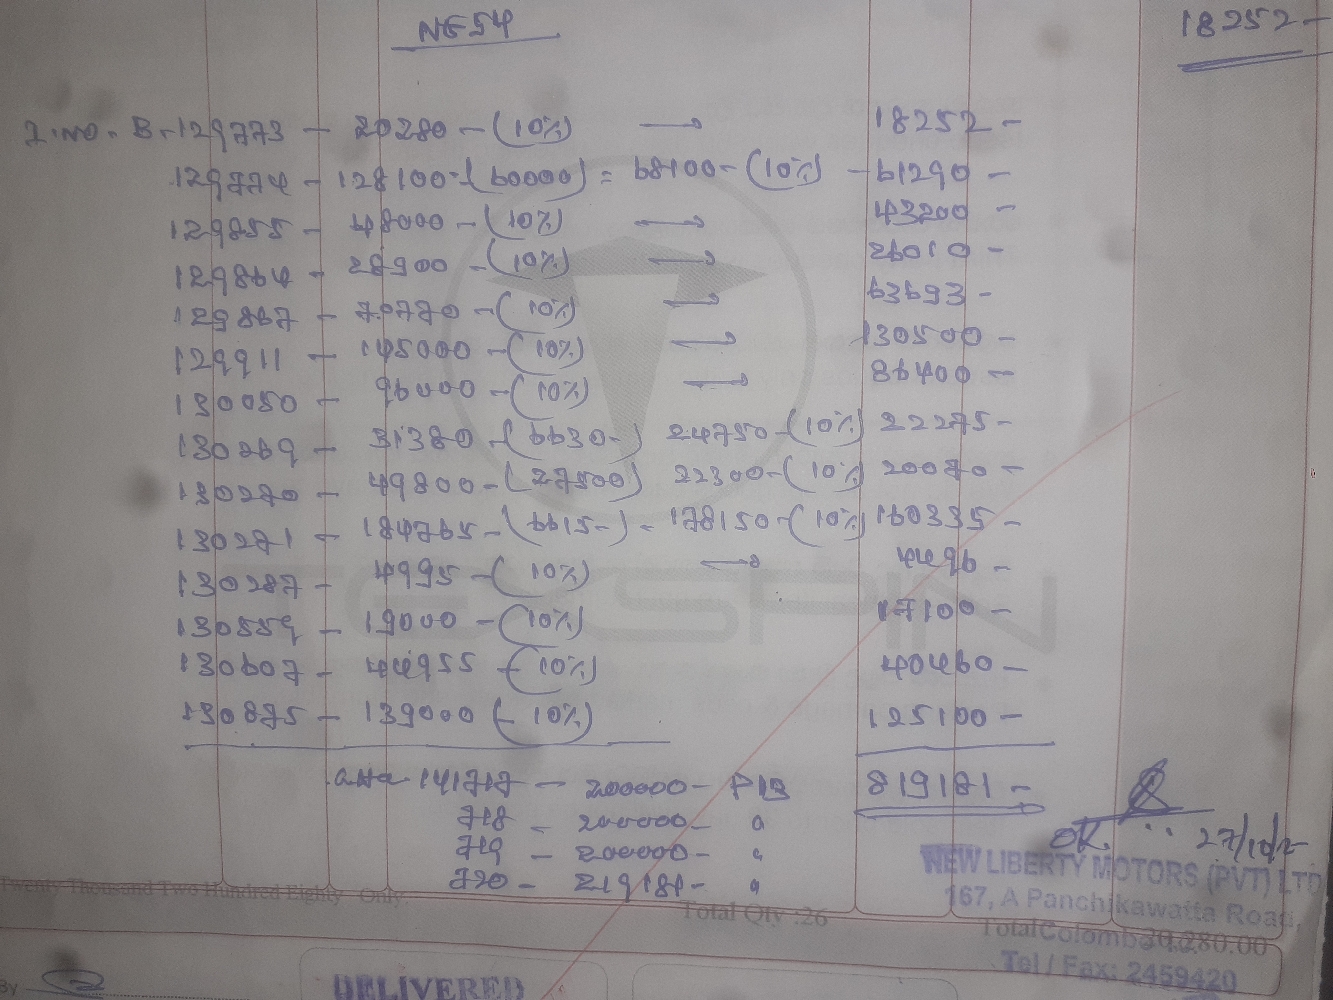 NG54
18252-
I.NO. B-129773 - 20280 - (10%) → 18252 -
129774 - 128100 - (60000) = 68100 - (10%) - 61290 -
129855 - 48000 - (10%) → 43200 -
129864 - 28900 - (10%) → 26010 -
129867 - 70770 - (10%) → 63693 -
129911 - 145000 - (10%) → 130500 -
130050 - 96000 - (10%) → 86400 -
130269 - 31380 - (6630-) 24750 - (10%) 22275 -
130270 - 49800 - (27500) 22300 - (10%) 20070 -
130271 - 184765 - (6615-) = 178150 - (10%) 160335 -
130287 - 4995 - (10%) → 4496 -
130559 - 19000 - (10%) 17100 -
130607 - 44955 - (10%) 40460 -
130875 - 139000 (- 10%) 125100 -
141717 - 200000 - P13 819181 -
718 - 200000 - "
719 - 200000 - "
720 - 219181 - "
OK.
TEXSPIN
NEW LIBERTY MOTORS (PVT) LTD
167, A Panchikawatta Road,
Colombo
Tel / Fax: 2459420
Twenty Thousand Two Hundred Eighty Only.
Total Qty :26
Total 20,280.00
By
DELIVERED